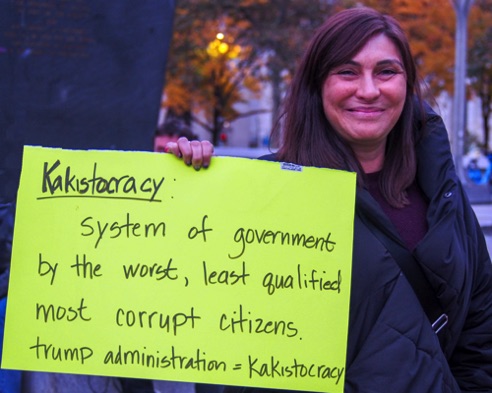 Kakistocracy:
System of government
by the worst, least qualified
most corrupt citizens.
trump administration = Kakistocracy